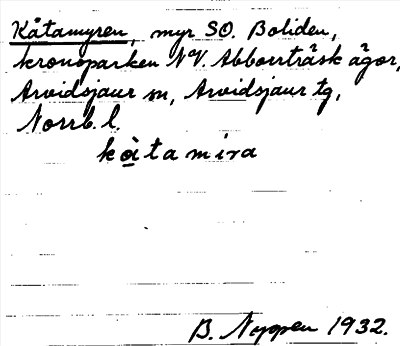 Kåtamyren, myr SO. Boliden,
kronoparken NV. Abborrträsk ägor,
Arvidsjaur sn, Arvidsjaur tg,
Norrb. l.
kåtamira
B. Nyppen 1932.